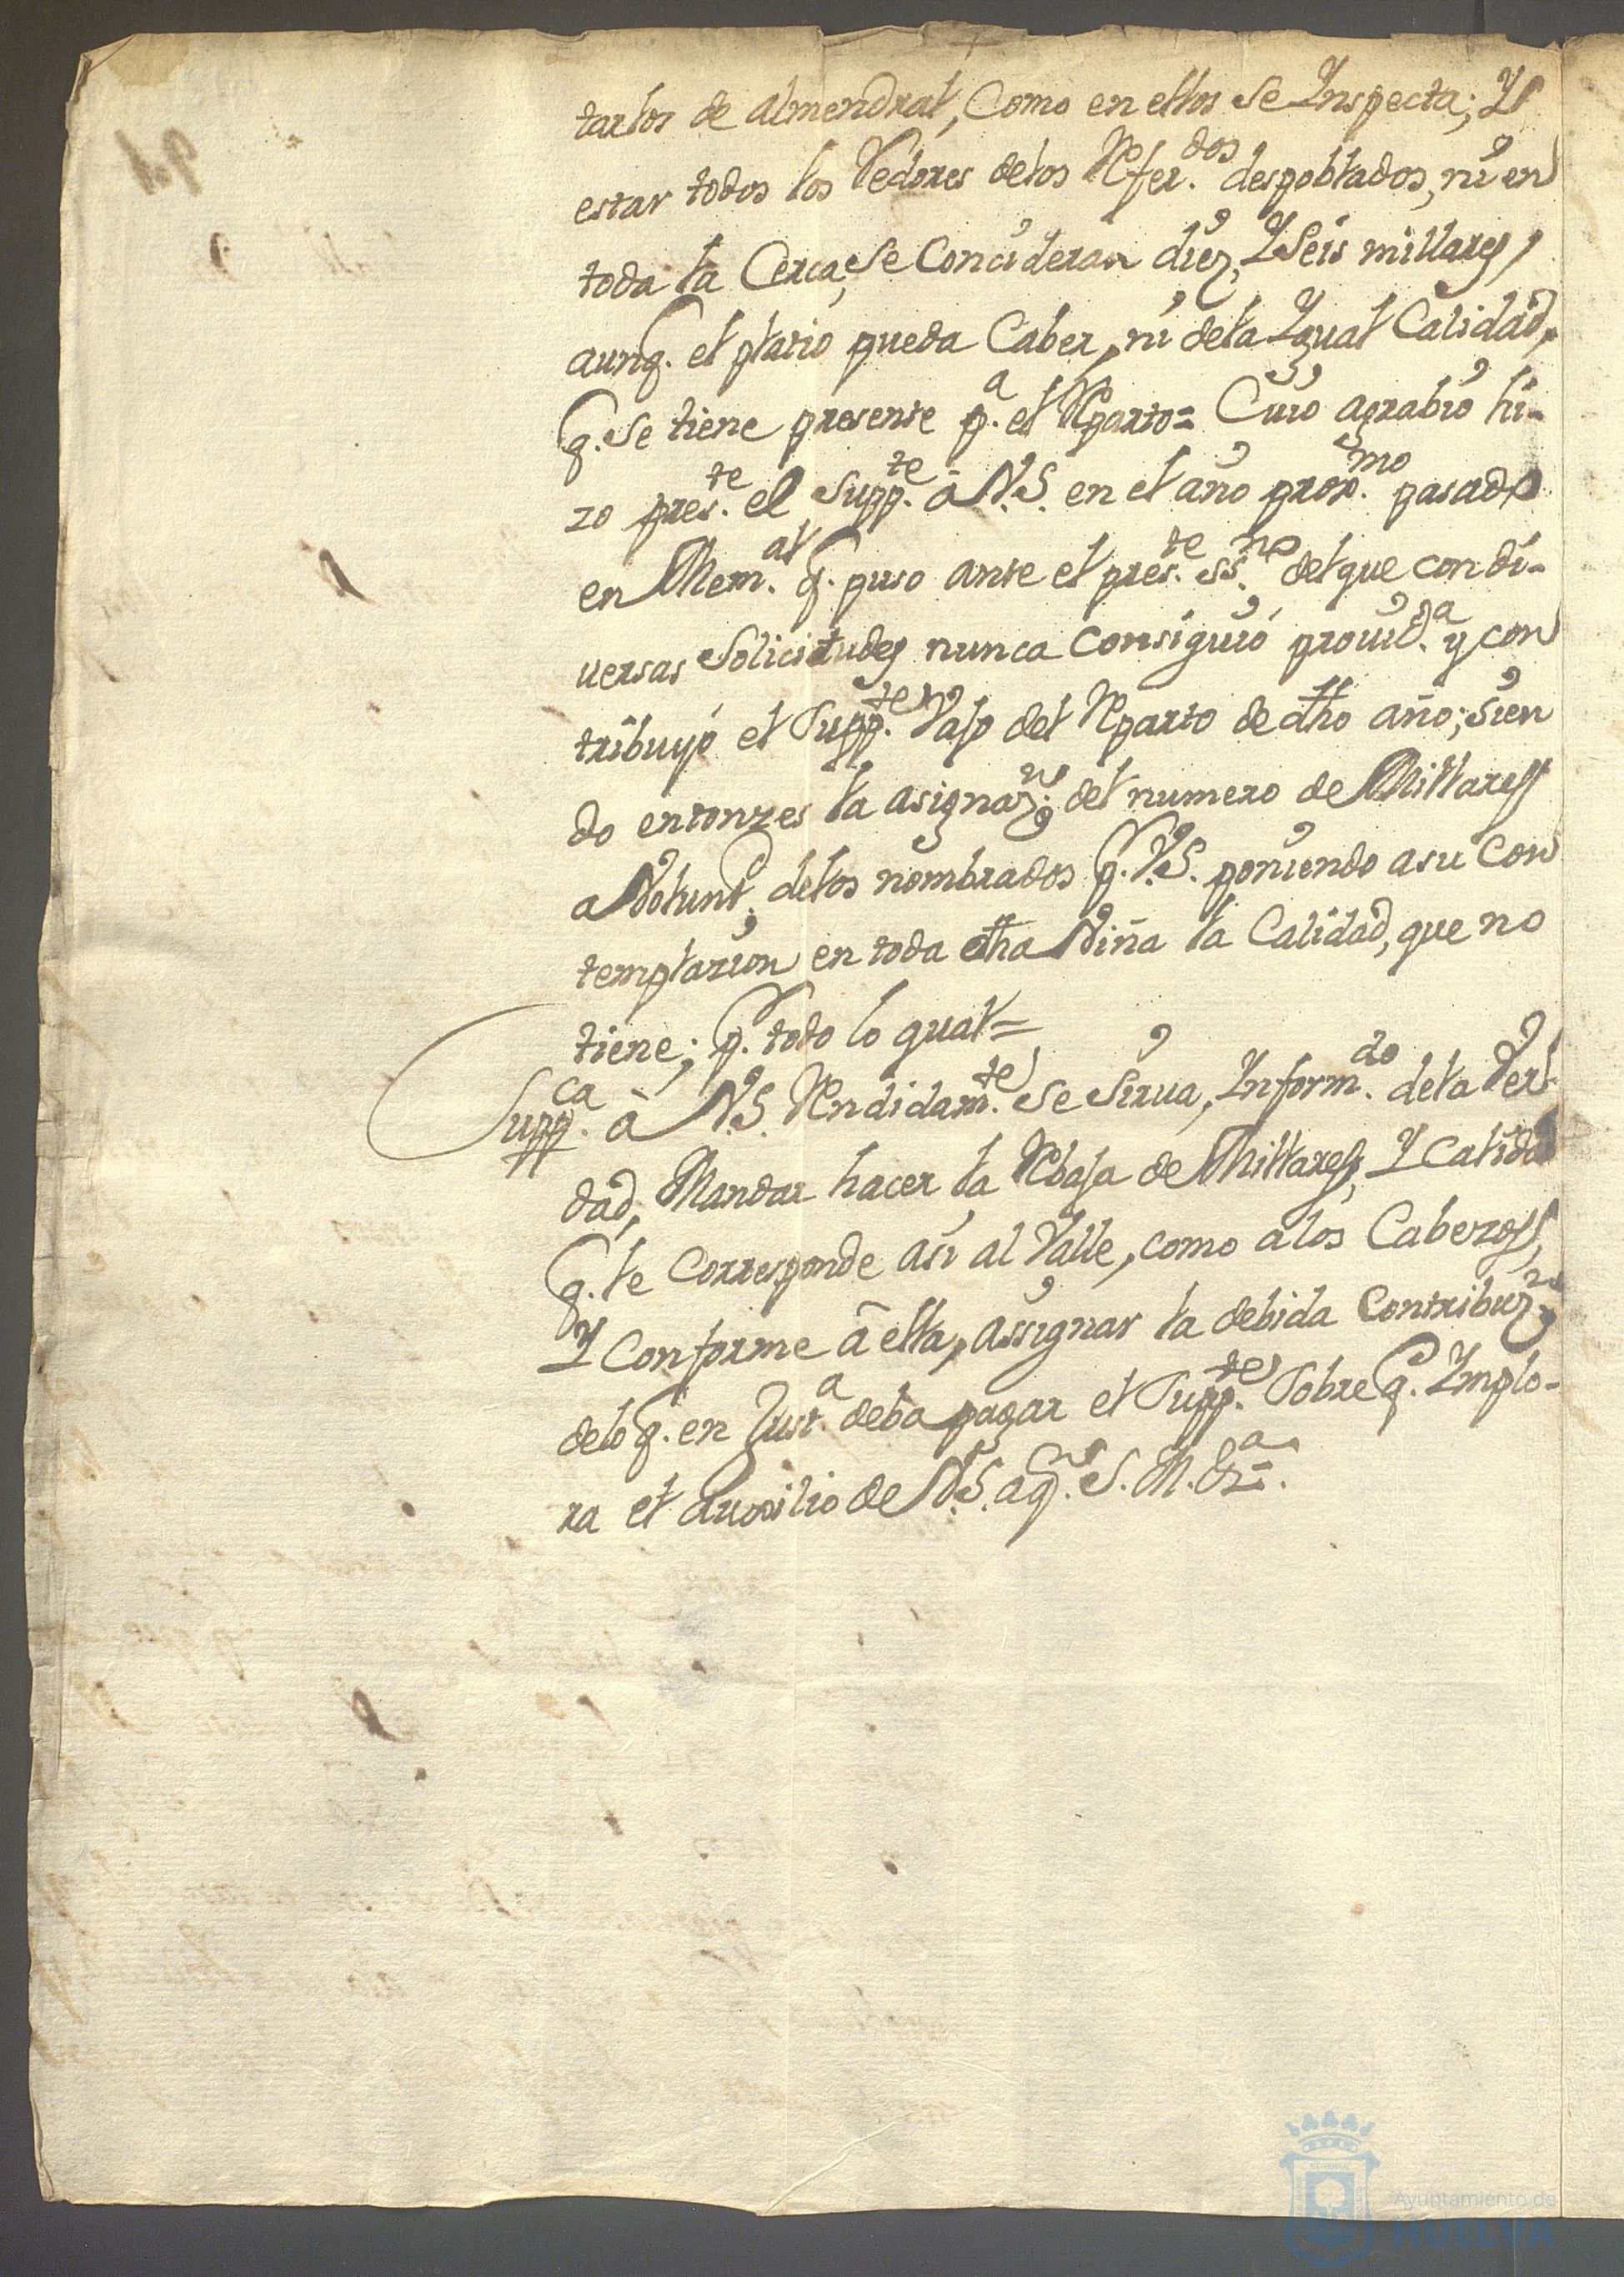 tarlos de almendral, Como en ellos Se Ynspecta; Y
estar todos los Vedores delos Refer.dos despoblados, ni en
toda la Cerca, Se Concideran diez, Y Seis millares,
aunq. el platio pueda Caber, ni dela Ygual Calidad,
q. Se tiene presente p.a el Reparto= Cuio agrabio hi-
zo pres.te el Supp.te â V.S. en el año prox.mo pasado
en Mem.al q. puso ante el pres.te ss.no del que con di-
uersas Solicitudes nunca Consiguió prouid.a y con
tribuyó el Supp.te Vajo del Reparto de dho año; Sien
do entonzes la asignaz.n del numero de Millares
a Volunt.d delos nombrados p. V.S. poniendo a su Con
templazion en toda dha Viña la Calidad, que no
tiene; p. todo lo qual=
Supp.ca â V.S. Rendidam.te Se Sirua, Inform.do dela Ver-
dad, Mandar hacer la Rebaja de Millares, Y Calidad
q. le Corresponde así al Valle, como a los Cabezos,
Y Conforme â ella, Assignar la debida Contribuz.n
delo q. en Just.a deba pagar el Supp.te Sobre q. Implo-
ra el auxilio de V.S. a q.n S. M. &a=.
Ayuntamiento de
HUELVA